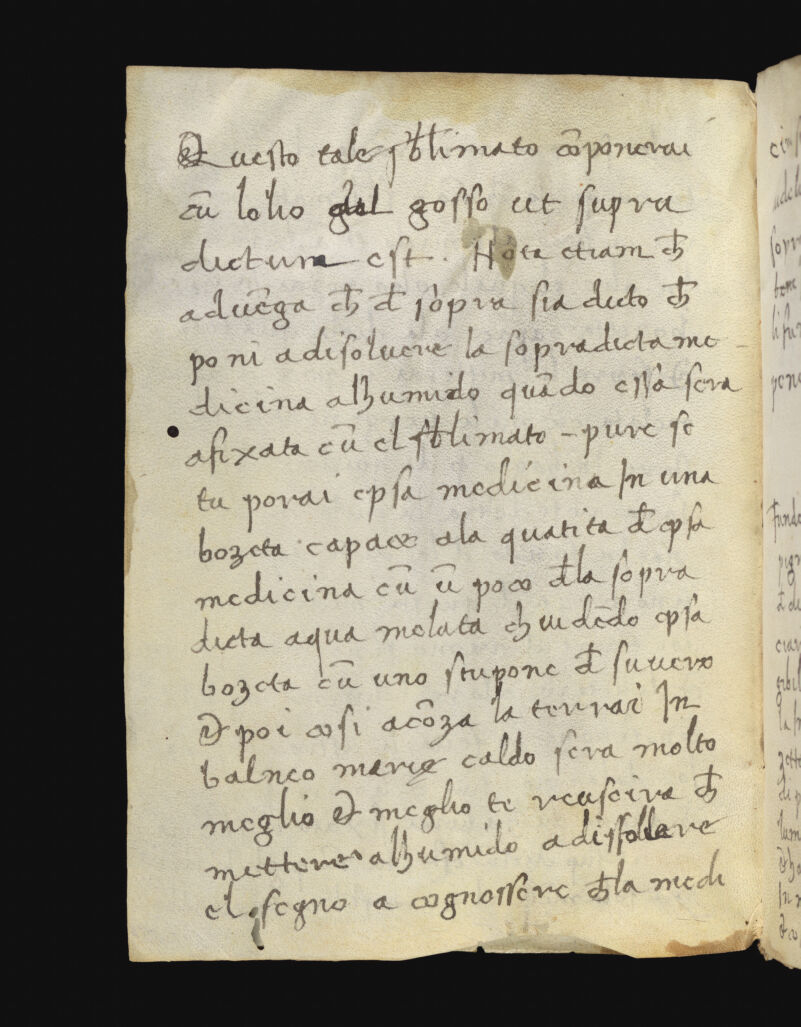 Questo tale sblimato cōponerai
cū lolio del gosso ut supra
dictum est. Nota etiam ch̄
aduēga ch̄ d̄ sopra sia dicto ch̄
poni adisoluere la sopradicta me-
dicina alhumido quādo essa sera
afixata cū el sblimato - pure se
tu porai epsa medicina In una
bozeta capace ala quātita d̄ epsa
medicina cū ū poco d̄la sopra
dicta aqua melata chiudēdo epsa
bozeta cū uno stupone d̄ suuero
& poi cosi acōza la terrai In
balneo marie caldo sera molto
meglio & meglio te reuscira ch̄
mettere alhumido a dissolluere
el segno a cognossere ch̄ la medi